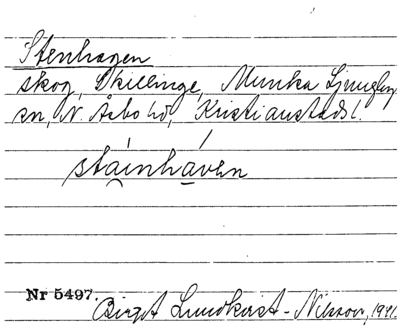 Stenhagen
skog, Skillinge, Munka Ljungby
sn, N. Åsbo hd, Kristianstads l.
stáinháven
Nr 5497.
Birgit Lundkvist-Nilsson, 1941.